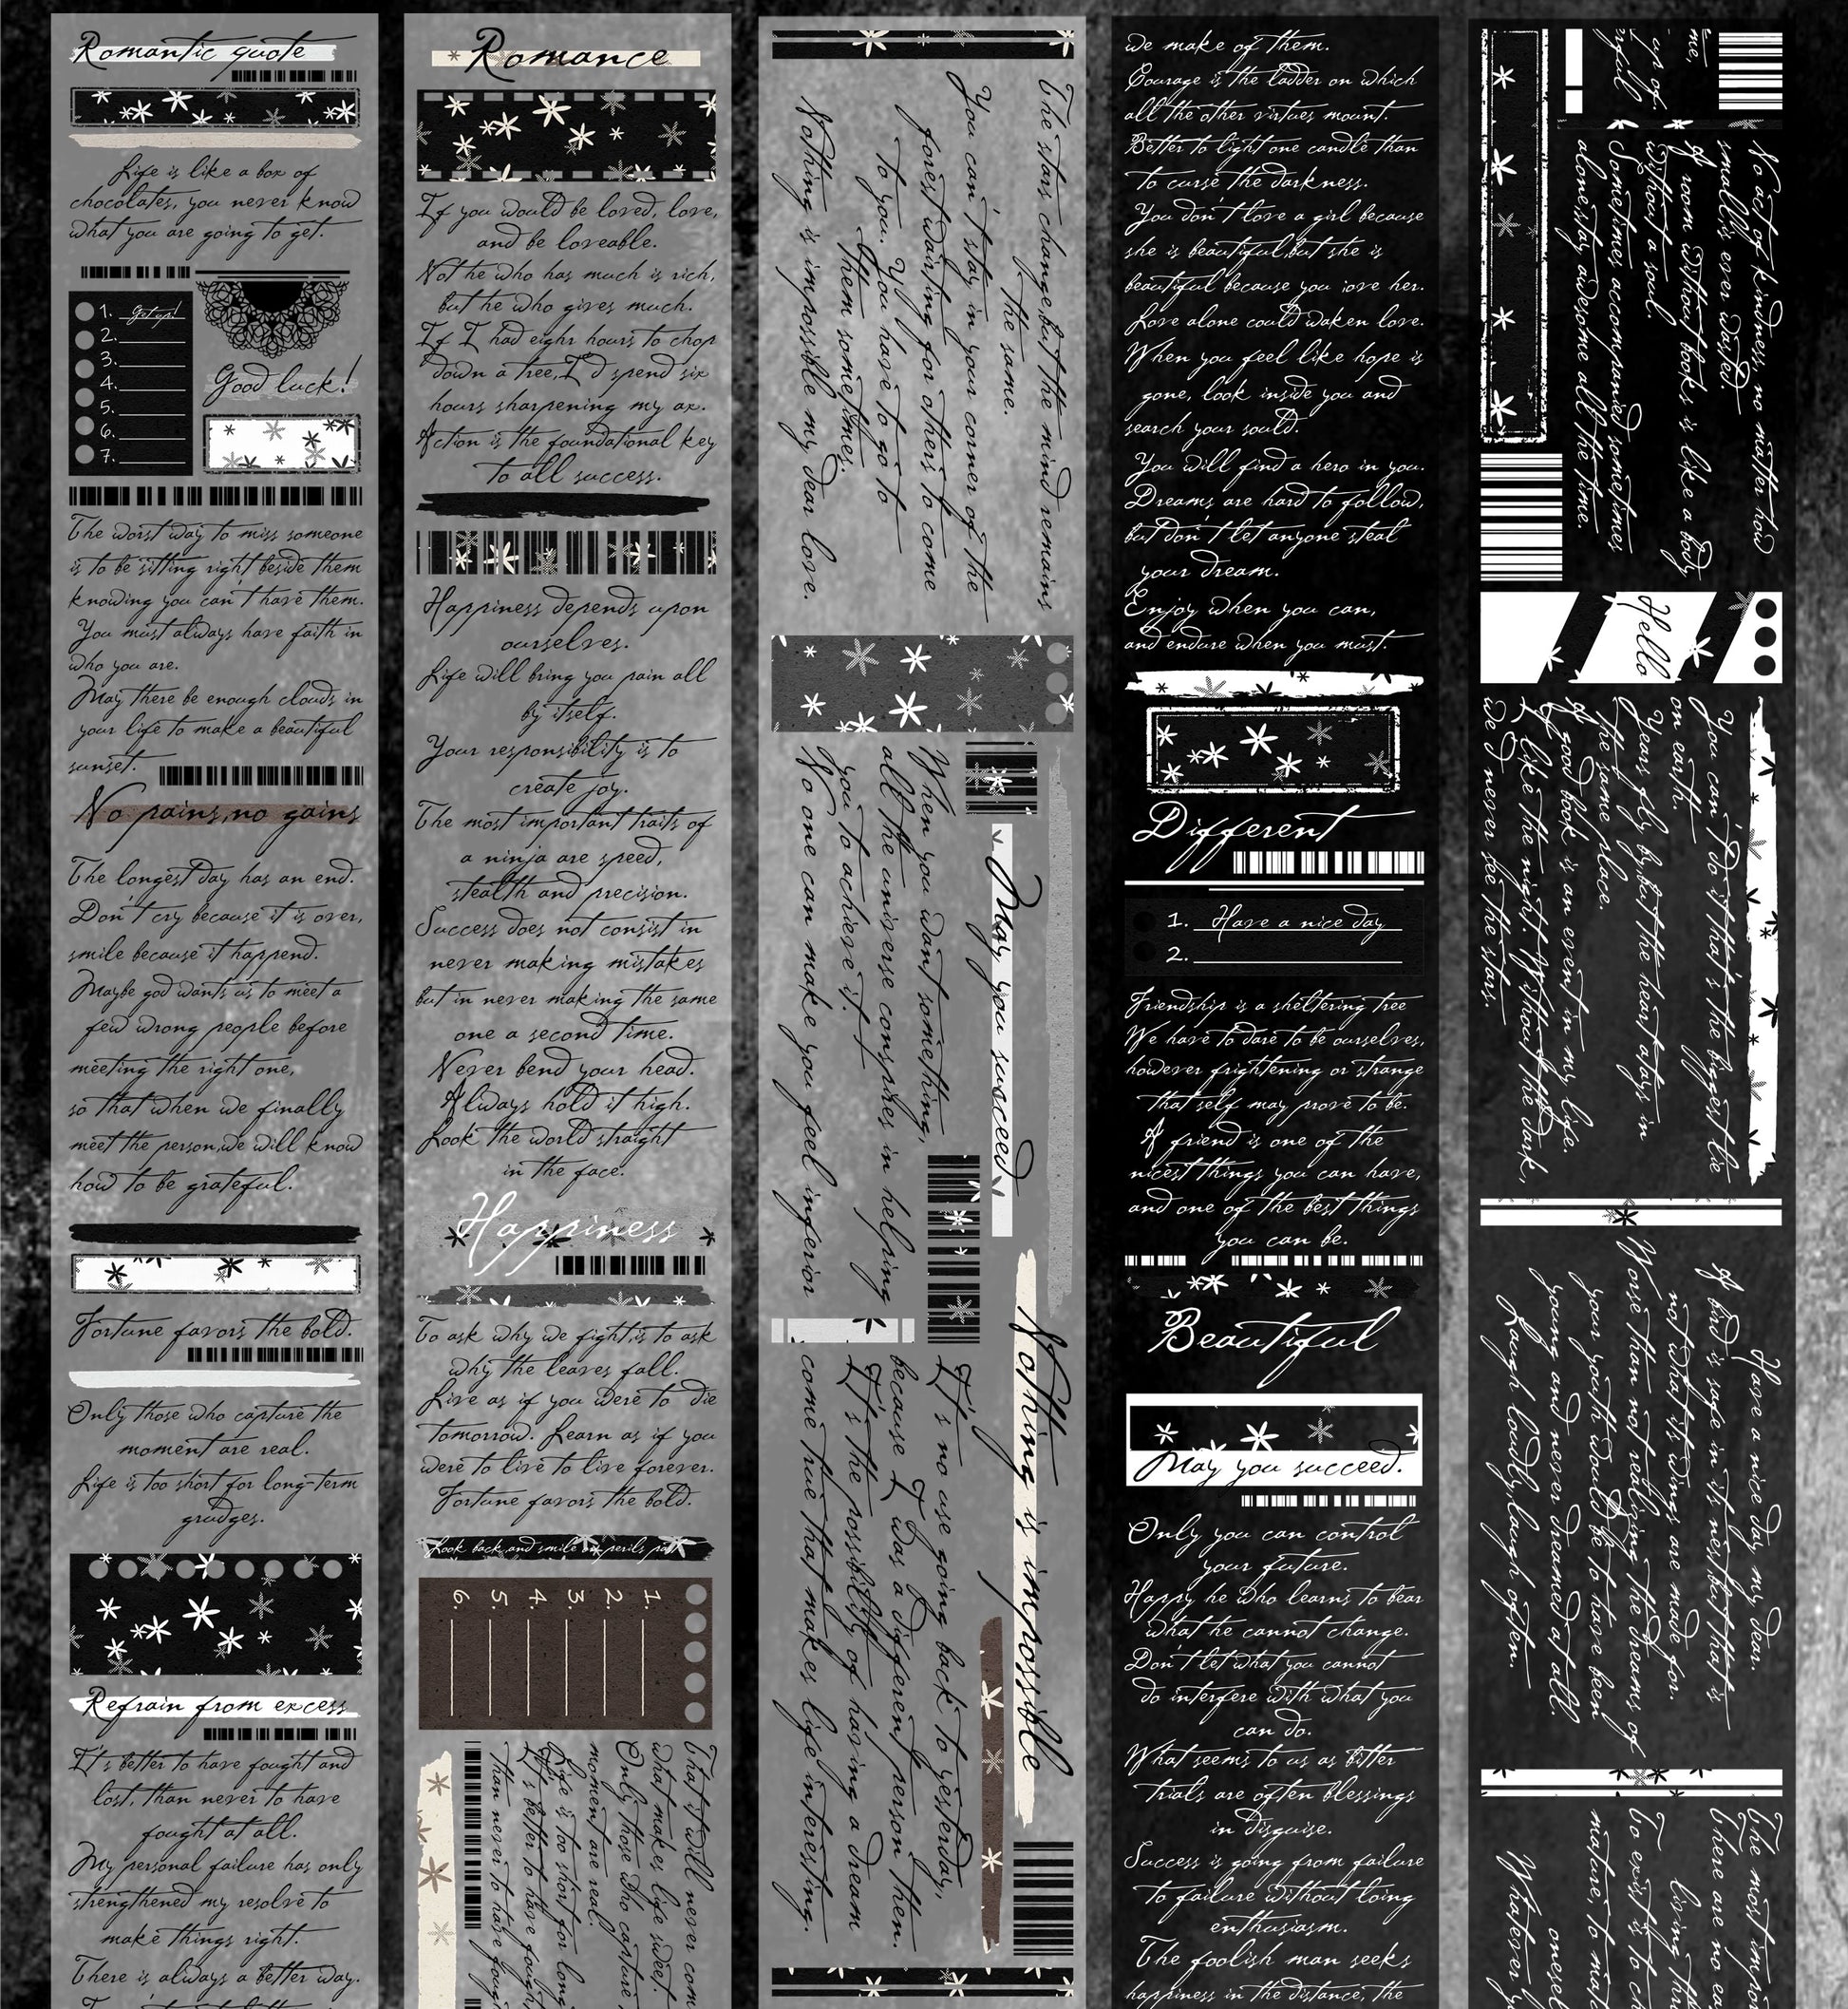 Romantic quote
Life is like a box of
chocolates, you never know
what you are going to get.
1. Get up!
2.
3.
4.
5.
6.
7.
Good luck!
The worst way to miss someone
is to be sitting right beside them
knowing you can't have them.
You must always have faith in
who you are.
May there be enough clouds in
your life to make a beautiful
sunset.
No pains,no gains
The longest day has an end.
Don't cry because it is over,
smile because it happend.
Maybe god wants us to meet a
few wrong people before
meeting the right one,
so that when we finally
meet the person,we will know
how to be grateful.
Fortune favors the bold.
Only those who capture the
moment are real.
Life is too short for long-term
grudges.
Refrain from excess
It's better to have fought and
lost, than never to have
fought at all.
My personal failure has only
strengthened my resolve to
make things right.
There is always a better way.
Romance
If you would be loved, love,
and be loveable.
Not he who has much is rich,
but he who gives much.
If I had eighr hours to chop
down a tree,I'd spend six
hours sharpening my ax.
Action is the foundational key
to all success.
Happiness depends upon
ourselves.
Life will bring you pain all
by itself.
Your responsibility is to
create joy.
The most important traits of
a ninja are speed,
stealth and precision.
Success does not consist in
never making mistakes
but in never making the same
one a second time.
Never bend your head.
Always hold it high.
Look the world straight
in the face.
Happiness
To ask why we fight,is to ask
why the leaves fall.
Live as if you were to die
tomorrow. Learn as if you
were to live to live forever.
Fortune favors the bold.
Look back,and smile on perils past
1.
2.
3.
4.
5.
6.
That it will never com
what makes life sweet.
Only those who capture
moment are real.
Life is too short for long
It's better to have fought
than never to have fough
The stars change,but the mind remains
the same.
You can't stay in your corner of the
forest waiting for others to come
to you. You have to go to
them sometimes.
Nothing is impossible my dear love.
When you want something,
all the universe conspires in helping
you to achieve it.
No one can make you feel inferior
May you succeed
Nothing is impossible
It's no use going back to yesterday,
because I was a different person then.
It's the possibility of having a dream
come true that makes life interesting.
we make of them.
Courage is the ladder on which
all the other virtues mount.
Better to light one candle than
to curse the darkness.
You don't love a girl because
she is beautiful,but she is
beautiful because you love her.
Love alone could waken love.
When you feel like hope is
gone, look inside you and
search your sould.
You will find a hero in you.
Dreams are hard to follow,
but don't let anyone steal
your dream.
Enjoy when you can,
and endure when you must.
Different
1. Have a nice day
2.
Friendship is a sheltering tree
We have to dare to be ourselves,
however frightening or strange
that self may prove to be.
A friend is one of the
nicest things you can have,
and one of the best things
you can be.
Beautiful
May you succeed.
Only you can control
your future.
Happy he who learns to bear
what he cannot change.
Don't let what you cannot
do interfere with what you
can do.
What seems to us as bitter
trials are often blessings
in disguise.
Success is going from failure
to failure without loing
enthusiasm.
The foolish man seeks
happiness in the distance, the
me,
us of
rful
No act of kindness, no matter how
small,is ever wasted.
A room without books is like a body
without a soul.
Sometimes accompanied,sometimes
alone,stay awesome all the time.
Hello
You can't do it,that's the biggest lie
on earth.
Years fly by,but the heart stays in
the same place.
A good book is an event in my life.
I like the night. Without the dark,
we'd never see the stars.
Have a nice day my dear.
A bird is safe in its nest-but that is
not what its wings are made for.
Worse than not realizing the dreams of
your youth would be to have been
young and never dreamed at all.
Laugh loudly,laugh often.
The most impo
There are no ea
living thr
To exist is to c
mature, to ma
onesel
Whatever y